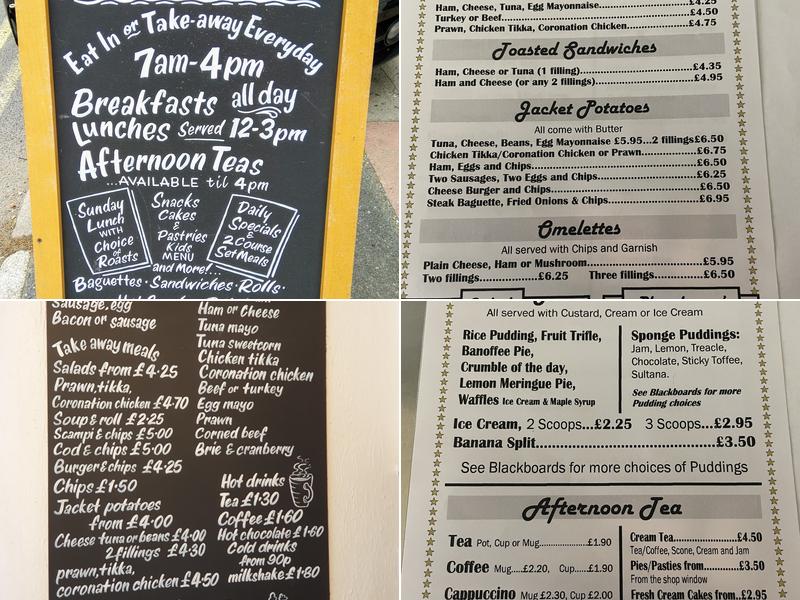 Eat In or Take-away Everyday
7am-4pm
Breakfasts all day
Lunches Served 12-3pm
Afternoon Teas
...AVAILABLE til 4pm
Sunday
Lunch
WITH
Choice
of
Roasts
Snacks
Cakes
&
Pastries
Kids
MENU
and More!...
Daily
Specials
&
2 Course
Set Meals
Baguettes · Sandwiches · Rolls ·
Ham, Cheese, Tuna, Egg Mayonnaise.....................£4.25
Turkey or Beef..................................................£4.50
Prawn, Chicken Tikka, Coronation Chicken.............£4.75
Toasted Sandwiches
Ham, Cheese or Tuna (1 filling)............................£4.35
Ham and Cheese (or any 2 fillings)........................£4.95
Jacket Potatoes
All come with Butter
Tuna, Cheese, Beans, Egg Mayonnaise £5.95...2 fillings£6.50
Chicken Tikka/Coronation Chicken or Prawn..............£6.75
Ham, Eggs and Chips............................................£6.50
Two Sausages, Two Eggs and Chips..........................£6.25
Cheese Burger and Chips.......................................£6.50
Steak Baguette, Fried Onions & Chips......................£6.95
Omelettes
All served with Chips and Garnish
Plain Cheese, Ham or Mushroom............................£5.95
Two fillings.................£6.25 Three fillings..............£6.50
Sausage, egg
Bacon or sausage
Take away meals
Salads from £4·25
Prawn, tikka,
Coronation chicken £4.70
Soup & roll £2·25
Scampi & chips £5·00
Cod & chips £5·00
Burger & chips £4·25
Chips £1·50
Jacket potatoes
from £4·00
Cheese tuna or beans £4·00
2 fillings £4·30
prawn, tikka,
coronation chicken £4·50
Ham or Cheese
Tuna mayo
Tuna sweetcorn
Chicken tikka
Coronation chicken
Beef or turkey
Egg mayo
Prawn
Corned beef
Brie & cranberry
Hot drinks
Tea £1·30
Coffee £1·60
Hot chocolate £1·60
Cold drinks
from 90p
milkshake £1·80
All served with Custard, Cream or Ice Cream
Rice Pudding, Fruit Trifle,
Banoffee Pie,
Crumble of the day,
Lemon Meringue Pie,
Waffles Ice Cream & Maple Syrup
Sponge Puddings:
Jam, Lemon, Treacle,
Chocolate, Sticky Toffee,
Sultana.
See Blackboards for more
Pudding choices
Ice Cream, 2 Scoops...£2.25 3 Scoops...£2.95
Banana Split.......................................£3.50
See Blackboards for more choices of Puddings
Afternoon Tea
Tea Pot, Cup or Mug..................£1.90
Coffee Mug.....£2.20, Cup.....£1.90
Cappuccino Mug £2.30, Cup £2.00
Cream Tea....................£4.50
Tea/Coffee, Scone, Cream and Jam
Pies/Pasties from.............£3.50
From the shop window
Fresh Cream Cakes from..£2.95